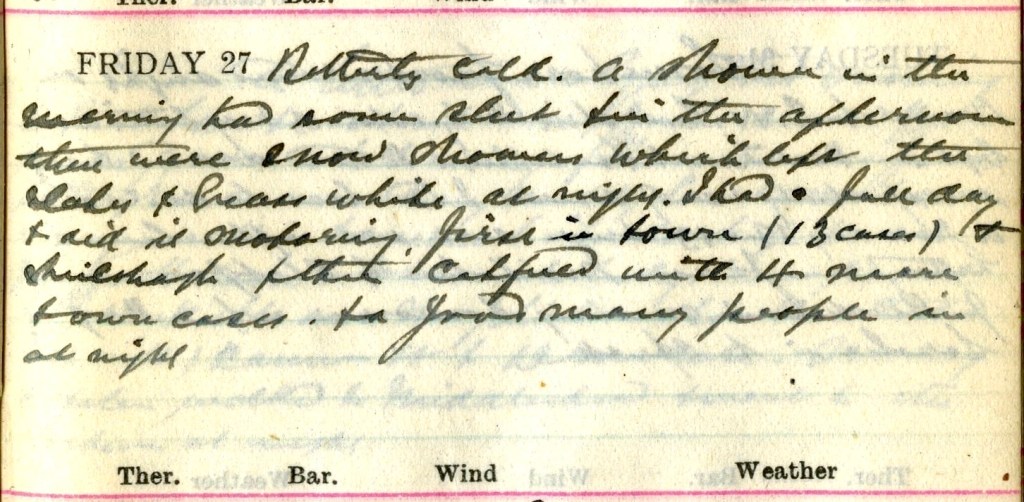 Ther. Bar. Wind
FRIDAY 27 Bitterly cold. A shower in the
morning had some sleet & in the afternoon
there were snow showers which left the
slates & Grass white at night. I had a full day
& did it motoring, first in town (13 cases) &
& then with 4 more
town cases. & a good many people in
at night
Ther. Bar. Wind Weather